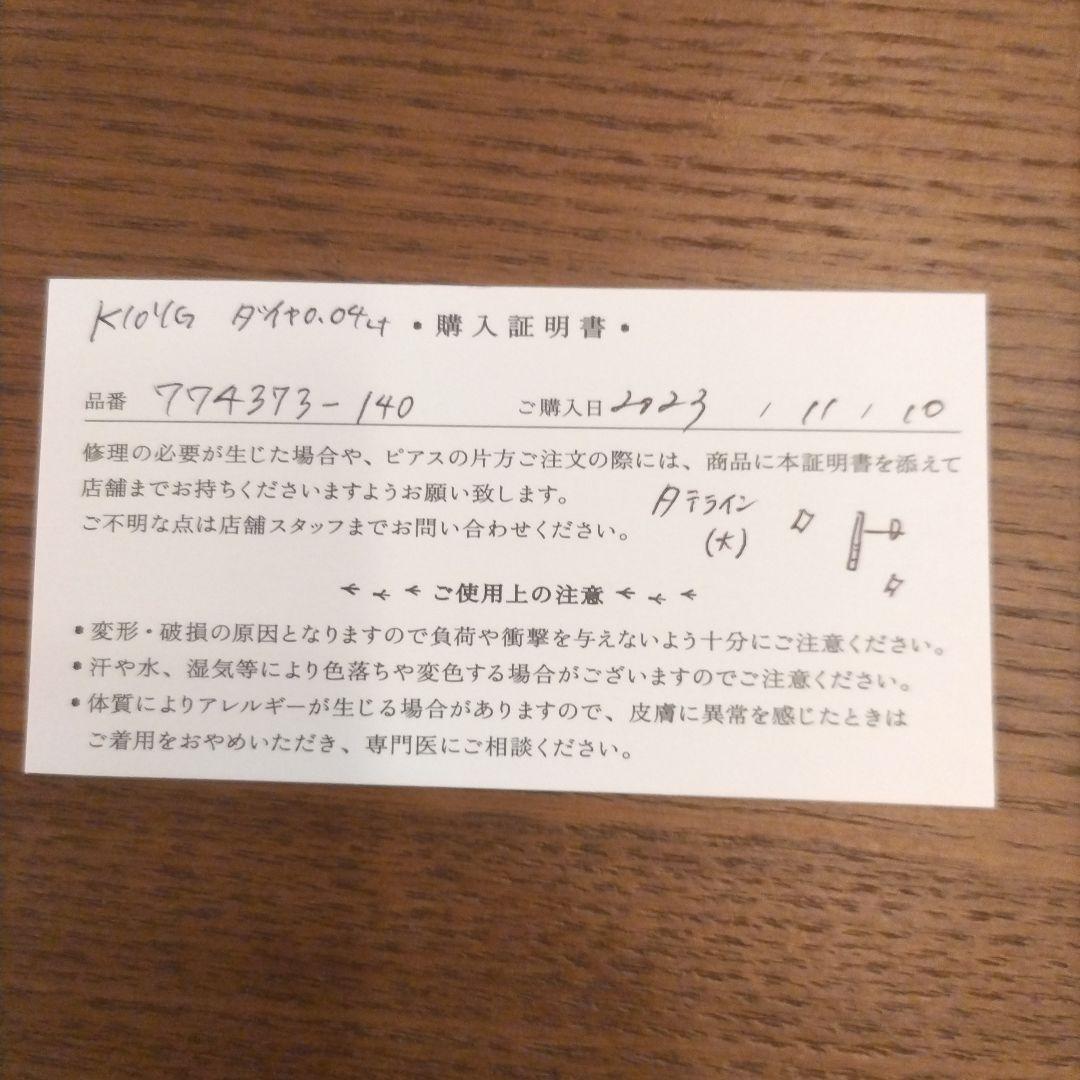 K10YG ダイヤ0.04ct
・購入証明書・
品番 774373-140 ご購入日 2023 / 11 / 10
修理の必要が生じた場合や、ピアスの片方ご注文の際には、商品に本証明書を添えて
店舗までお持ちくださいますようお願い致します。
ご不明な点は店舗スタッフまでお問い合わせください。
タテライン
(大)
ご使用上の注意
・変形・破損の原因となりますので負荷や衝撃を与えないよう十分にご注意ください。
・汗や水、湿気等により色落ちや変色する場合がございますのでご注意ください。
・体質によりアレルギーが生じる場合がありますので、皮膚に異常を感じたときは
ご着用をおやめいただき、専門医にご相談ください。